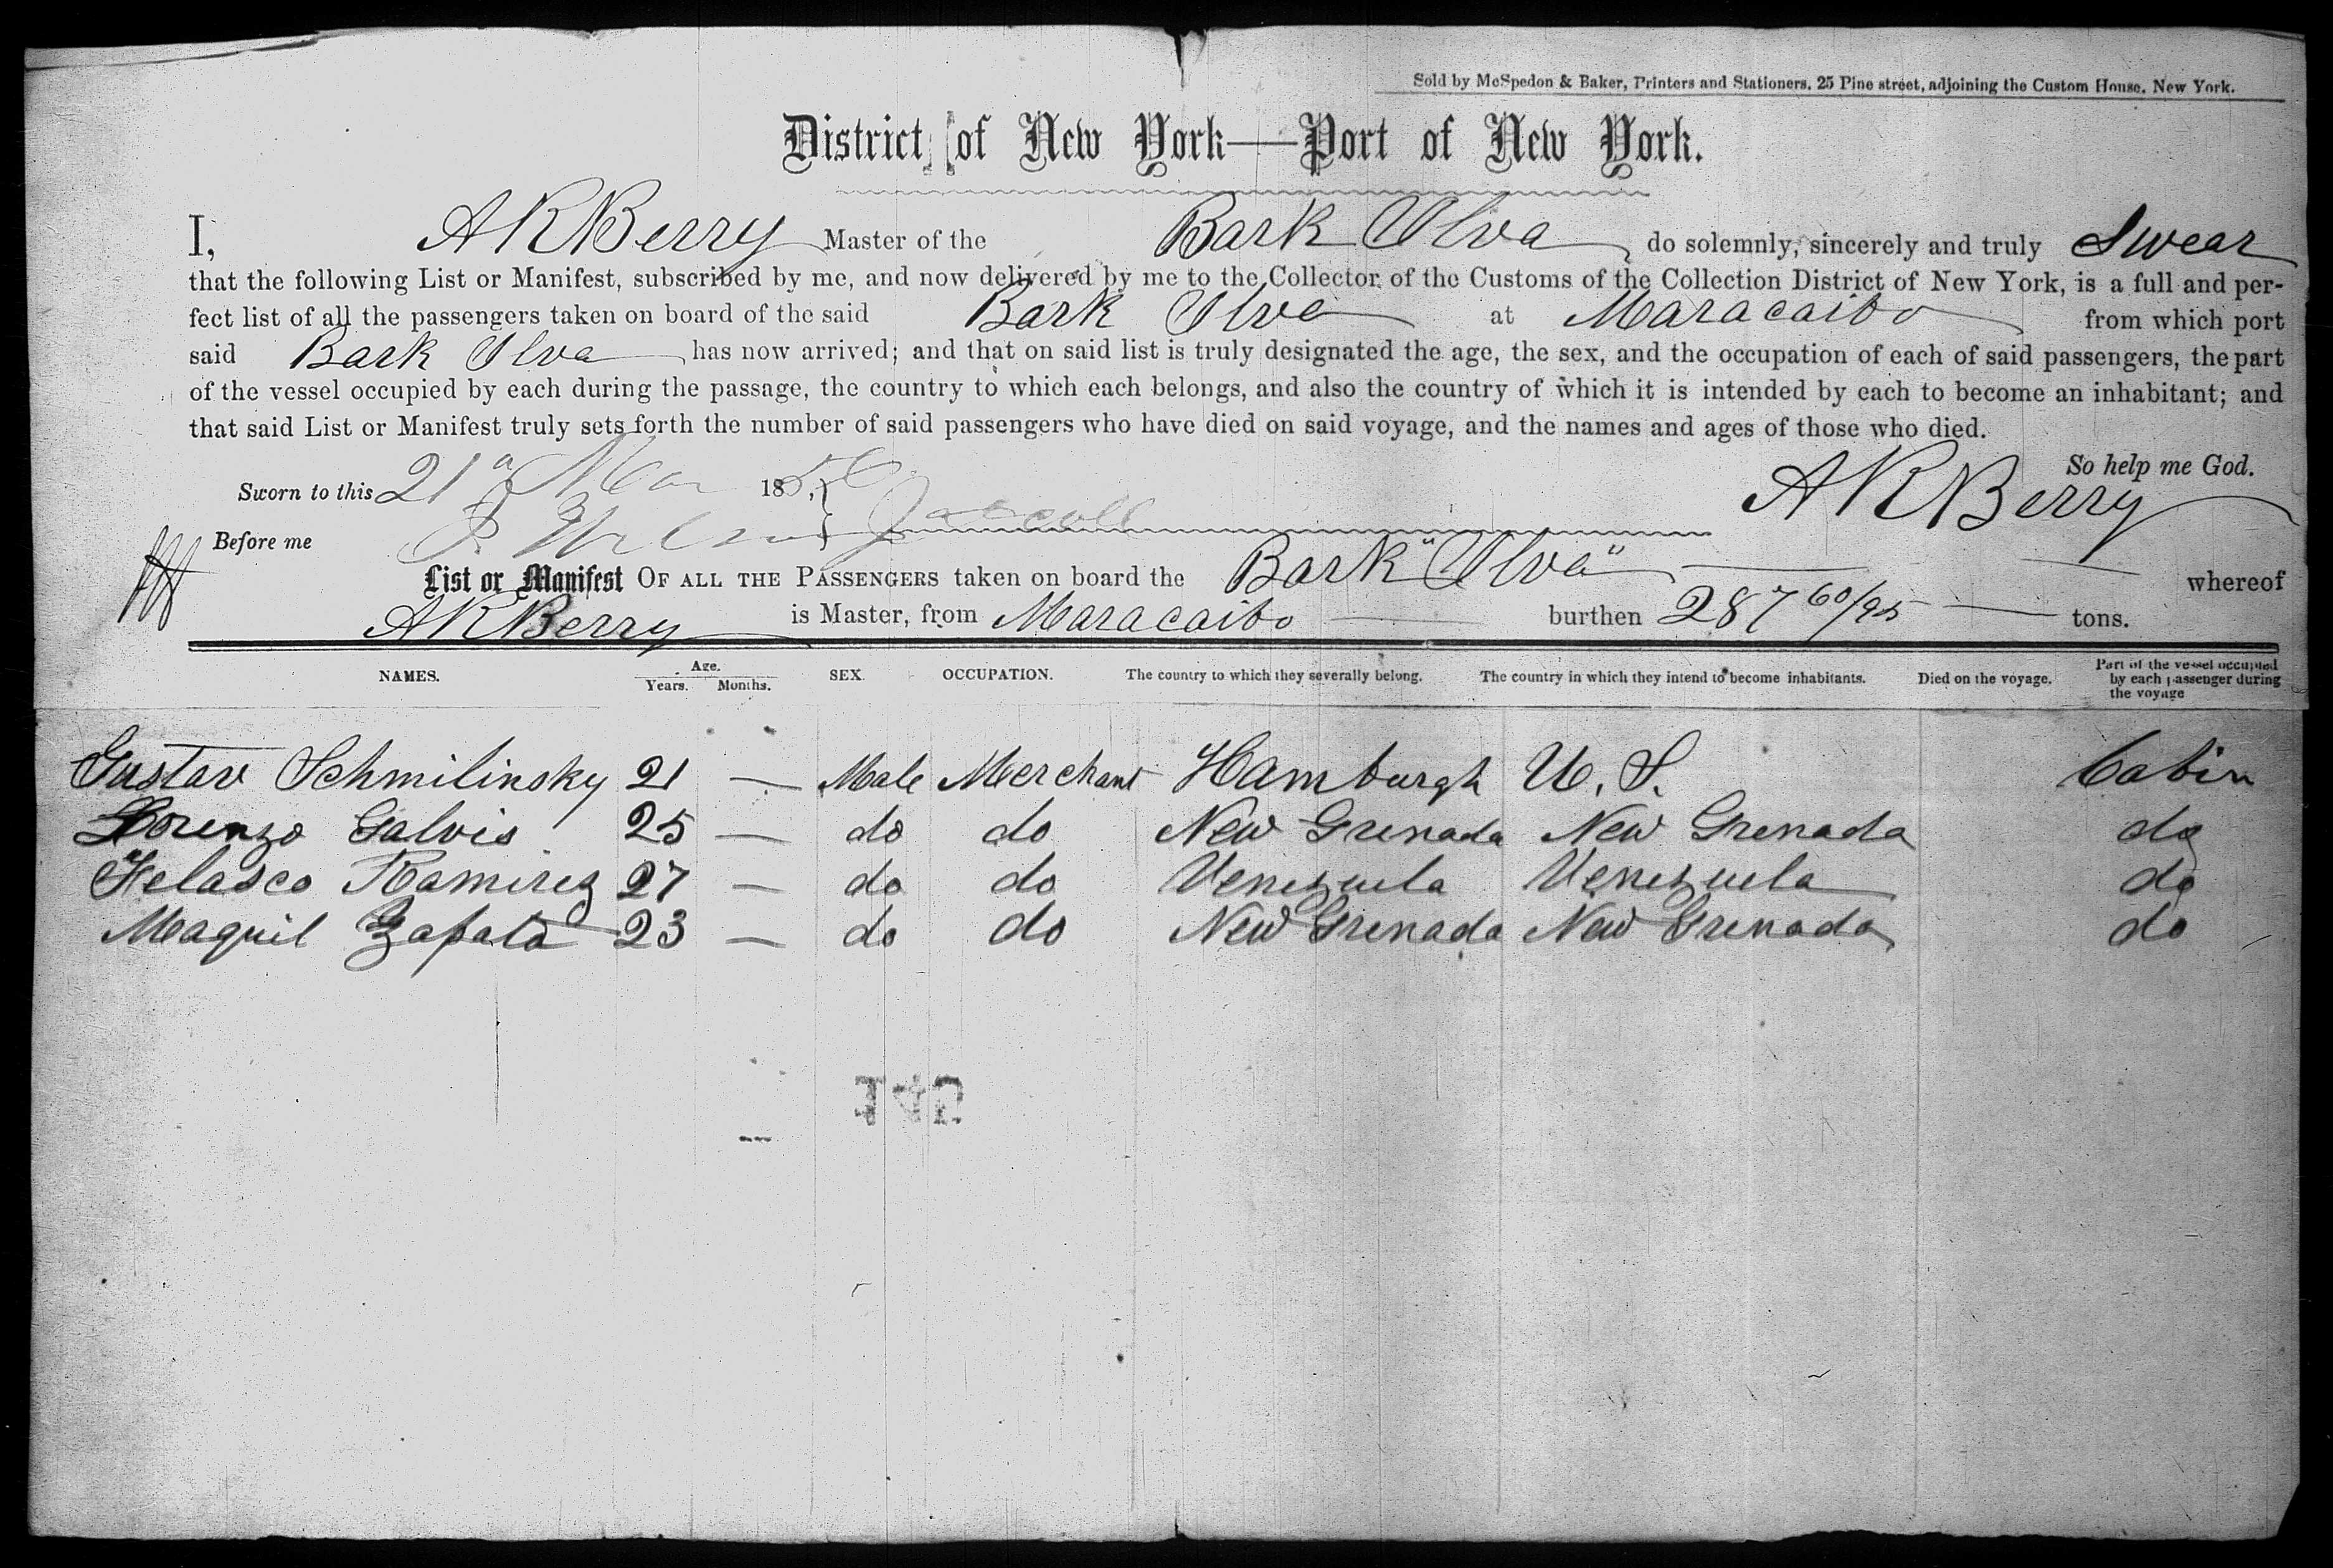 Sold by McSpedon & Baker, Printers and Stationers, 25 Pine street, adjoining the Custom House, New York.
District of New York—Port of New York.
I, A R Berry Master of the Bark Ulva do solemnly, sincerely and truly Swear
that the following List or Manifest, subscribed by me, and now delivered by me to the Collector of the Customs of the Collection District of New York, is a full and per-
fect list of all the passengers taken on board of the said Bark Ulva at Maracaibo from which port
said Bark Ulva has now arrived; and that on said list is truly designated the age, the sex, and the occupation of each of said passengers, the part
of the vessel occupied by each during the passage, the country to which each belongs, and also the country of which it is intended by each to become an inhabitant; and
that said List or Manifest truly sets forth the number of said passengers who have died on said voyage, and the names and ages of those who died.
So help me God.
Sworn to this 21 185
A R Berry
Before me
List or Manifest OF ALL THE PASSENGERS taken on board the Bark "Ulva" whereof
A R Berry is Master, from Maracaibo burthen 287 60/95 tons.
NAMES. Age. Years. Months. SEX. OCCUPATION. The country to which they severally belong. The country in which they intend to become inhabitants. Died on the voyage. Part of the vessel occupied by each passenger during the voyage
Gustav Schmilinsky 21 — Male Merchant Hamburgh U. S. Cabin
Lorenzo Galvis 25 — do do New Grenada New Grenada do
Felasco Ramirez 27 — do do Venezuela Venezuela do
Maquil Zapata 23 — do do New Grenada New Grenada do
145